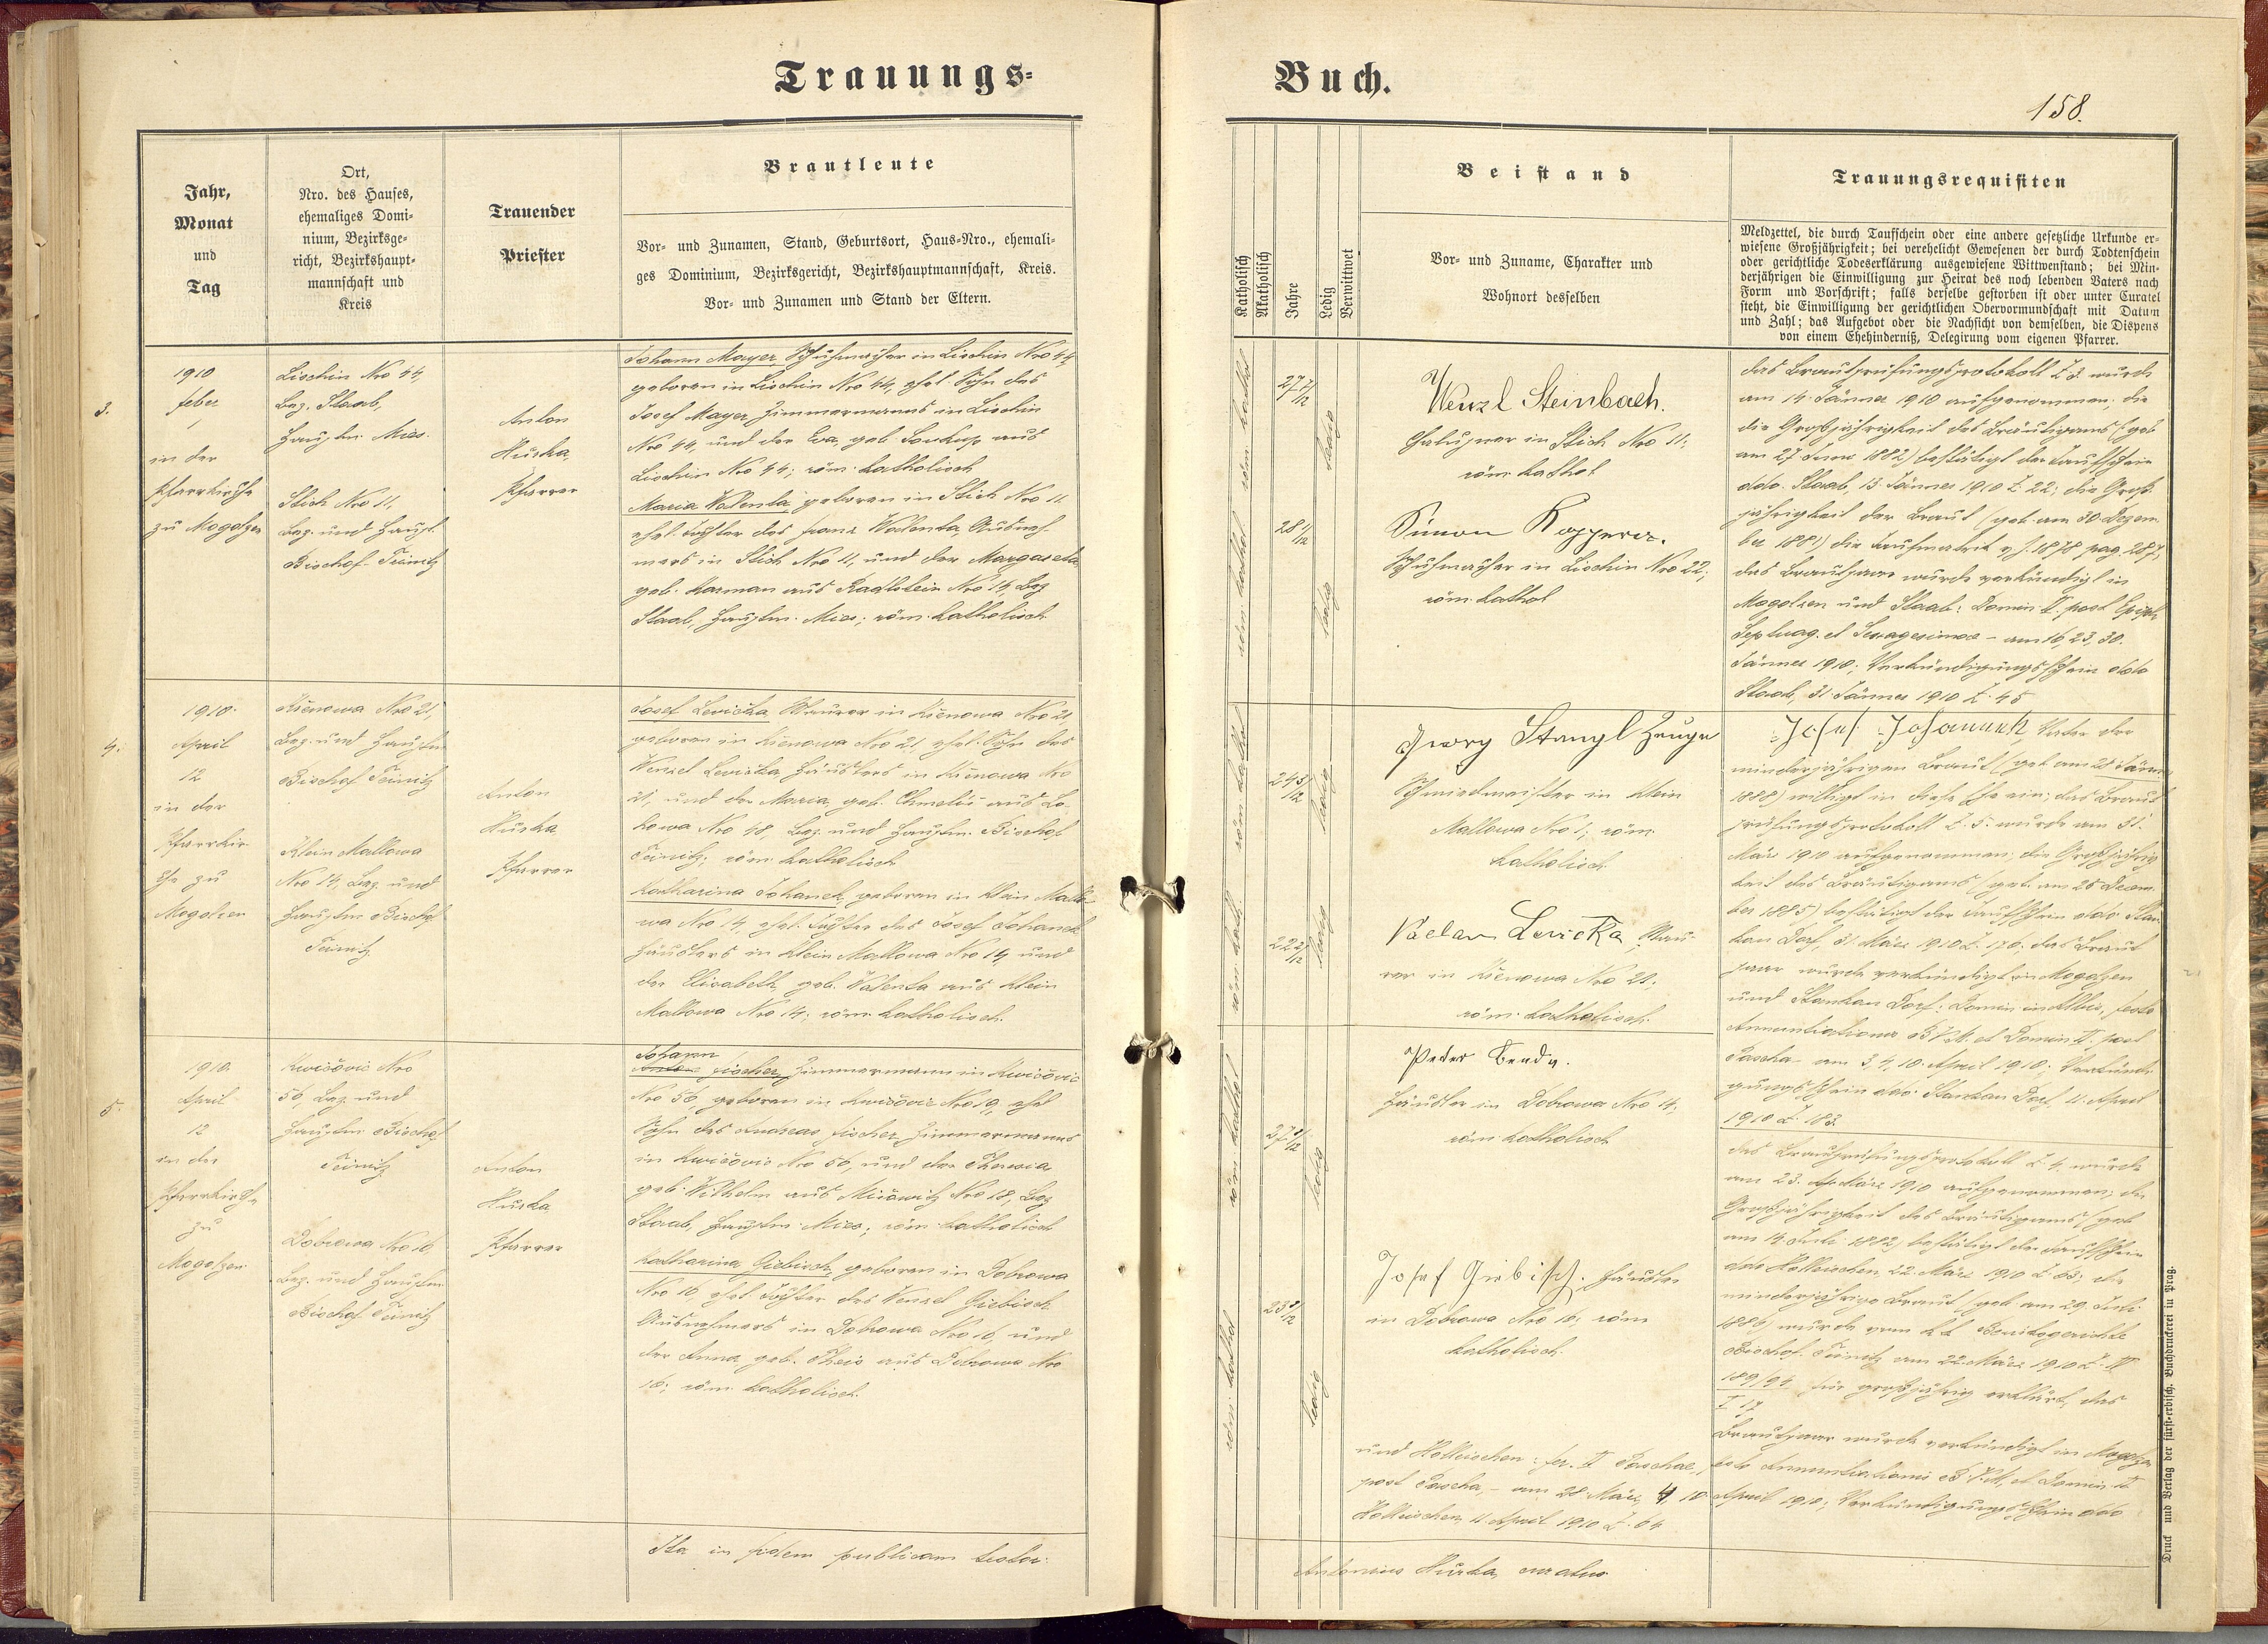 Trauungs-
Buch.
158.
Jahr,
Monat
und
Tag
Ort,
Nro. des Hauses,
ehemaliges Domi-
nium, Bezirksge-
richt, Bezirkshaupt-
mannschaft und
Kreis
Trauender
Priester
Brautleute
Vor- und Zunamen, Stand, Geburtsort, Haus-Nro., ehemali-
ges Dominium, Bezirksgericht, Bezirkshauptmannschaft, Kreis.
Vor- und Zunamen und Stand der Eltern.
Katholisch
Akatholisch
Jahre
Ledig
Verwittwet
Beistand
Vor- und Zuname, Charakter und
Wohnort desselben
Trauungsrequisiten
Meldzettel, die durch Taufschein oder eine andere gesetzliche Urkunde er-
wiesene Großjährigkeit; bei verehelicht Gewesenen der durch Todtenschein
oder gerichtliche Todeserklärung ausgewiesene Wittwenstand; bei Min-
derjährigen die Einwilligung zur Heirat des noch lebenden Vaters nach
Form und Vorschrift; falls derselbe gestorben ist oder unter Curatel
steht, die Einwilligung der gerichtlichen Obervormundschaft mit Datum
und Zahl; das Aufgebot oder die Nachsicht von demselben, die Dispens
von einem Ehehinderniß, Delegirung vom eigenen Pfarrer.
3.
1910
feber
1
in der
Pfarrkirche
zu Mogolzen
Lischin Nro 44,
Bez. Staab,
Hauptm. Mies.
Stich Nro 11,
Bez. und Hauptm.
Bischof-Teinitz
Anton
Hurka,
Pfarrer
Johann Mayer, Schuhmacher in Lischin Nro 44,
geboren in Lischin Nro 44, ehel. Sohn des
Josef Mayer, Zimmermanns in Lischin
Nro 44, und der Eva, geb. Soukup aus
Lischin Nro 44; röm. katholisch
Maria Walenta, geboren in Stich Nro 11
ehel. Tochter des Franz Walenta, Ausneh-
mers in Stich Nro 11, und der Margareta
geb. Karman aus Radlstein Nro 14, Bez
Staab, Hauptm. Mies; röm. katholisch
röm. kathol
27 7/12
ledig
röm. kathol
28 1/12
ledig
Wenzl Steinbach.
Chalupner in Stich Nro 11;
röm. kathol
Simon Kopperer.
Schuhmacher in Lischin Nro 22;
röm. kathol
das Brautprüfungsprotokoll Z. 3. wurde
am 14. Jänner 1910 aufgenommen; die
die Großjährigkeit des Bräutigams (geb
am 27. Juni 1882) bestätigt der Taufschein
ddo. Staab, 13. Jänner 1910 Z. 22; die Groß-
jährigkeit der Braut (geb. am 30. Dezem-
ber 1881) die Taufmatrik v. J. 1878 pag. 287;
das Brautpaar wurde verkündigt in
Mogolzen und Staab: Domin. II. post Epiph,
Septuag. et Sexagesima - am 16, 23, 30.
Jänner 1910; Verkündigungsschein ddo
Staab, 31. Jänner 1910 Z. 45
4.
1910.
April
12
in der
Pfarrkir-
che zu
Mogolzen
Křenowa Nro 21,
Bez. und Hauptm
Bischof Teinitz
Klein Mallowa
Nro 14, Bez. und
Hauptm Bischof
Teinitz.
Anton
Hurka
Pfarrer
Josef Levička, Maurer in Křenowa Nro 21,
geboren in Křenowa Nro 21, ehel. Sohn des
Wenzel Levička, Häuslers in Křenowa Nro
21, und der Maria, geb. Chmelíř aus Lo-
howa Nro 48, Bez. und Hauptm. Bischof
Teinitz; röm. katholisch
Katharina Johanek, geboren in Klein Mallo-
wa Nro 14, ehel. Tochter des Josef Johanek
Häuslers in Klein Mallowa Nro 14, und
der Elisabeth, geb. Walenta aus Klein
Mallowa Nro 14; röm. katholisch.
röm. kathol
24 3/12
ledig
röm. kath.
22 2/12
ledig
Georg Stangl Zeuge
Schmiedmeister in Klein
Mallowa Nro 1; röm.
katholisch
Vaclav Levička, Mau-
rer in Křenowa Nro 21;
röm. katholisch.
Josef Johanek Vater der
minderjährigen Braut (geb. am 21 Jänner
1888) willigt in diese Ehe ein; das Braut-
prüfungsprotokoll Z. 5. wurde am 31.
März 1910 aufgenommen; die Großjährig-
keit des Bräutigams (geb. am 25 Dezem-
ber 1885) bestätigt der Taufschein ddo Stan-
kau Dorf, 31. März 1910 Z. 170; das Braut-
paar wurde verkündigt in Mogolzen
und Stankau Dorf: Domin. in Albis, festo
Annuntiationis B. V. M. et Domin II. post
Pascha - am 3, 4, 10. April 1910; Verkündi-
gungsschein ddo. Stankau Dorf, 11. April
1910 Z. 183.
5.
1910.
April
12
in der
Pfarrkirche
zu
Mogolzen
Kwičovic Nro
56, Bez. und
Hauptm Bischof
Teinitz
Dobrowa Nro 16,
Bez. und Hauptm
Bischof Teinitz
Anton
Hurka
Pfarrer
Johann
Fischer, Zimmermann in Kwičovic
Nro 56, geboren in Kwičovic Nro 19, ehel
Sohn des Andreas Fischer, Zimmermanns
in Kwičovic Nro 56, und der Theresia
geb. Wilhelm aus Mirowitz Nro 18, Bez
Staab, Hauptm. Mies; röm. katholisch
Katharina Giebisch, geboren in Dobrowa
Nro 16, ehel. Tochter des Wenzel Giebisch
Ausnehmers in Dobrowa Nro 16, und
der Anna, geb. Theis aus Dobrowa Nro
16; röm. katholisch.
röm. kathol
27 9/12
ledig
röm. kathol
23 9/12
ledig
Peter Bendy.
Häusler in Dobrowa Nro 14;
röm katholisch
Josef Giebisch. Häusler
in Dobrowa Nro 16; röm
katholisch
das Brautprüfungsprotokoll Z. 4. wurde
am 23. März 1910 aufgenommen; die
Großjährigkeit des Bräutigams (geb
am 14. Juli 1882) bestätigt der Taufschein
ddo Holleischen, 22. März 1910 Z. 63; die
minderjährige Braut (geb. am 29. Juli
1886) wurde vom k k Bezirksgerichte
Bischof-Teinitz am 22. März 1910 Z. IV
189/94 für großjährig erklärt; das
I 17
Brautpaar wurde verkündigt in Mogolzen
und Holleischen: fer. II Paschae, festo Annuntiationis B. V. M, et Domin. II
post Pascha, - am 28 März, 4, 10 April 1910; Verkündigungsschein ddo
Holleischen, 11. April 1910 Z. 64
Ita in fidem publicam testor.
Antonius Hurka, curatus
Druck und Verlag der fürst-erzbisch. Buchdruckerei in Prag.